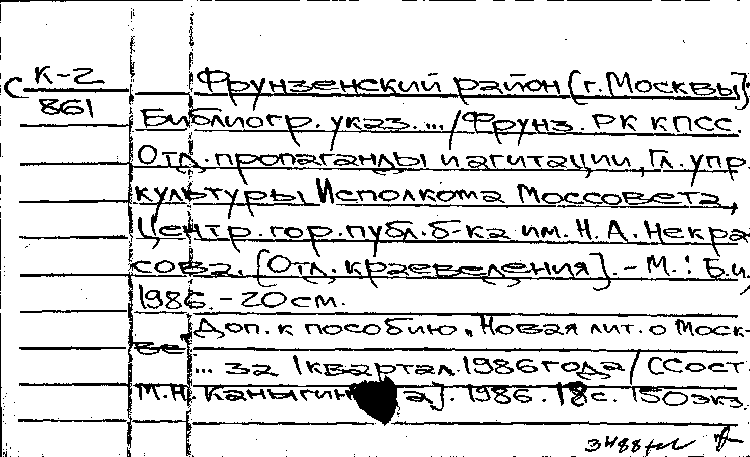 С К-2
861
Фрунзенский район (г. Москвы).
Библиогр. указ. ... / Фрунз. РК КПСС.
Отд. пропаганды и агитации, Гл. упр.
культуры Исполкома Моссовета,
Центр. гор. публ. б-ка им. Н. А. Некра-
сова. [Отд. краеведения]. - М. : Б.и.,
1986. - 20 см.
Доп. к пособию "Новая лит. о Моск-
ве"
... за I квартал 1986 года / [Сост.
М.Н. Каныгин а]. 1986. 18 с. 150 экз.